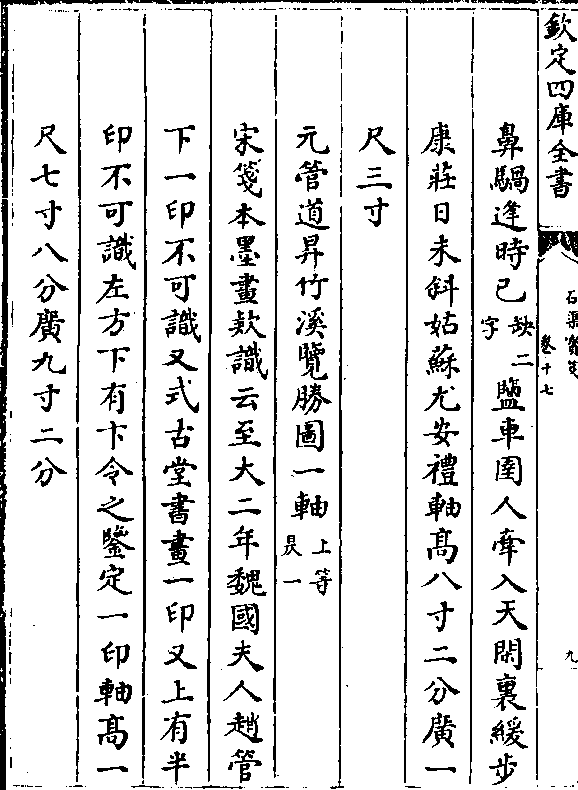 欽定四庫全書
石渠寳笈
卷十七
九
鼻騧逢時已缺二字鹽車圉人牽入天閑裏緩步
康莊日未斜姑蘇尤安禮軸髙八寸二分廣一
尺三寸
元管道昇竹溪覽勝圖一軸上等昃一
宋箋本墨畫欵識云至大二年魏國夫人趙管
下一印不可識又式古堂書畫一印又上有半
印不可識左方下有卞令之鑒定一印軸髙一
尺七寸八分廣九寸二分